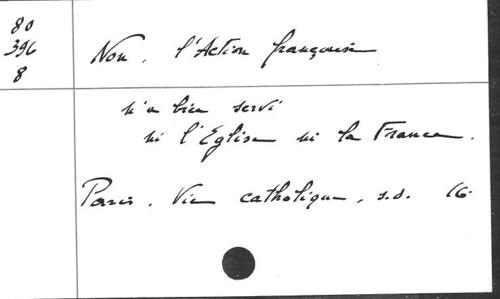 80
396
8
Non, l'Action française
n'a bien servi
ni l'Eglise ni la France.
Paris, Vie catholique, s.d. 16